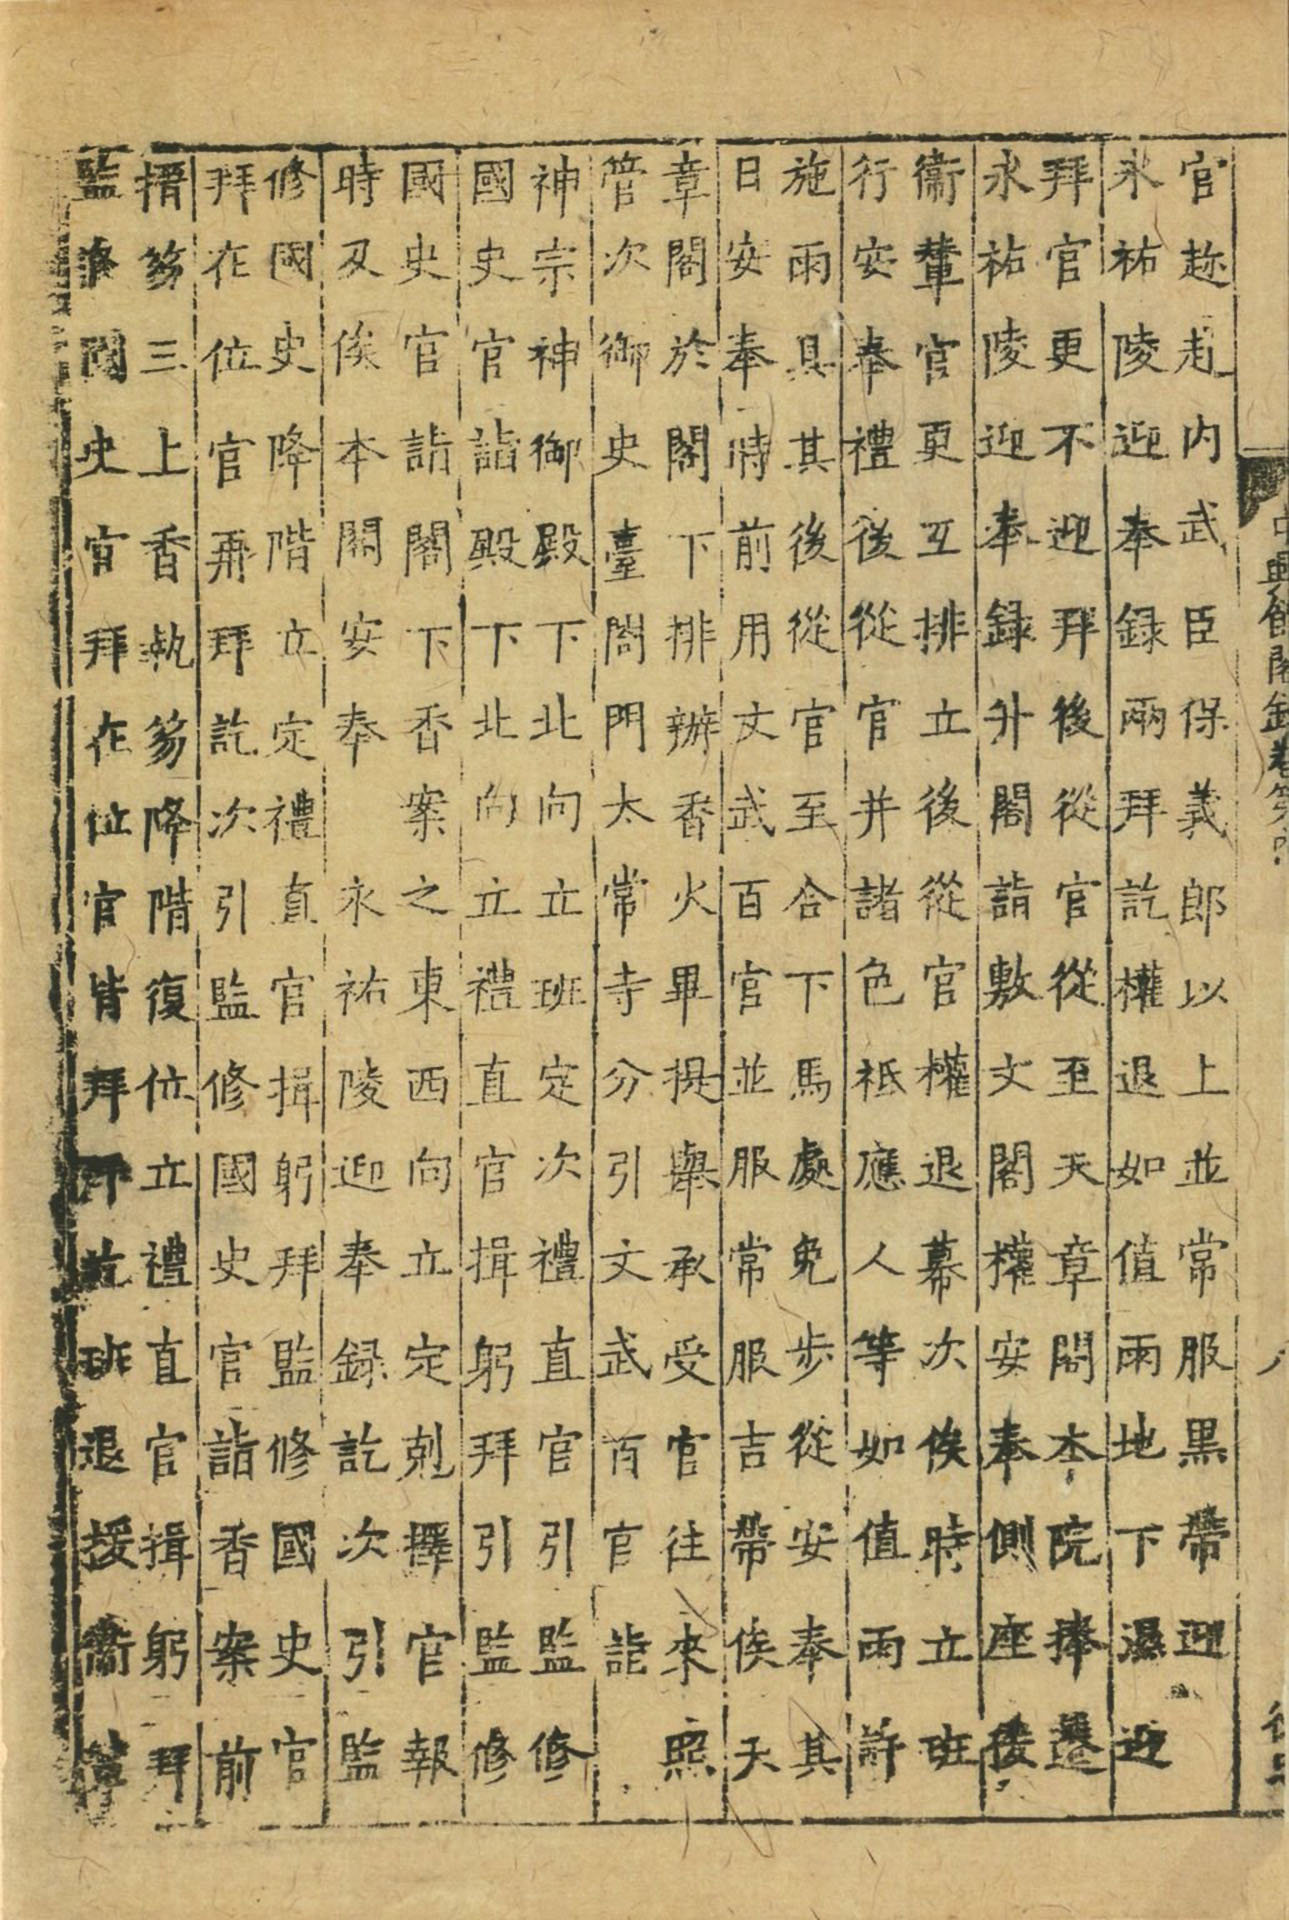 官趂赴内武臣保義郎以上並常服黒帶迎
永祐陵迎奉録兩拜訖權退如值雨地下濕迎
拜官更不迎拜後從官從至天章閣本院捧遷
永祐陵迎奉録升閣詣敷文閣權安奉側座後
衞輦官更互排立後從官權退幕次俟時立班
行安奉禮後從官井諸色祗應人等如值雨許
施雨具其後從官至合下馬處免步從安奉其
日安奉時前用丈武百官並服常服吉帶俟天
章閣於閣下排辦香火畢提舉承受官往來照
管次御史臺閤門太常寺分引文武百官詣
神宗神御殿下北向立班定次禮直官引監修
國史官詣殿下北向立禮直官揖躬拜引監修
國史官詣閤下香案之東西向立定剋擇官報
時及俟本閣安奉永祐陵迎奉録訖次引監
修國史降階立定禮直官揖躬拜監修國史官
拜在位官再拜訖次引監修國史官詣香案前
搢笏三上香執笏降階復位立禮直官揖躬拜
監修國史官拜在位官皆拜訖班退援衞輦
中興館閣録卷第